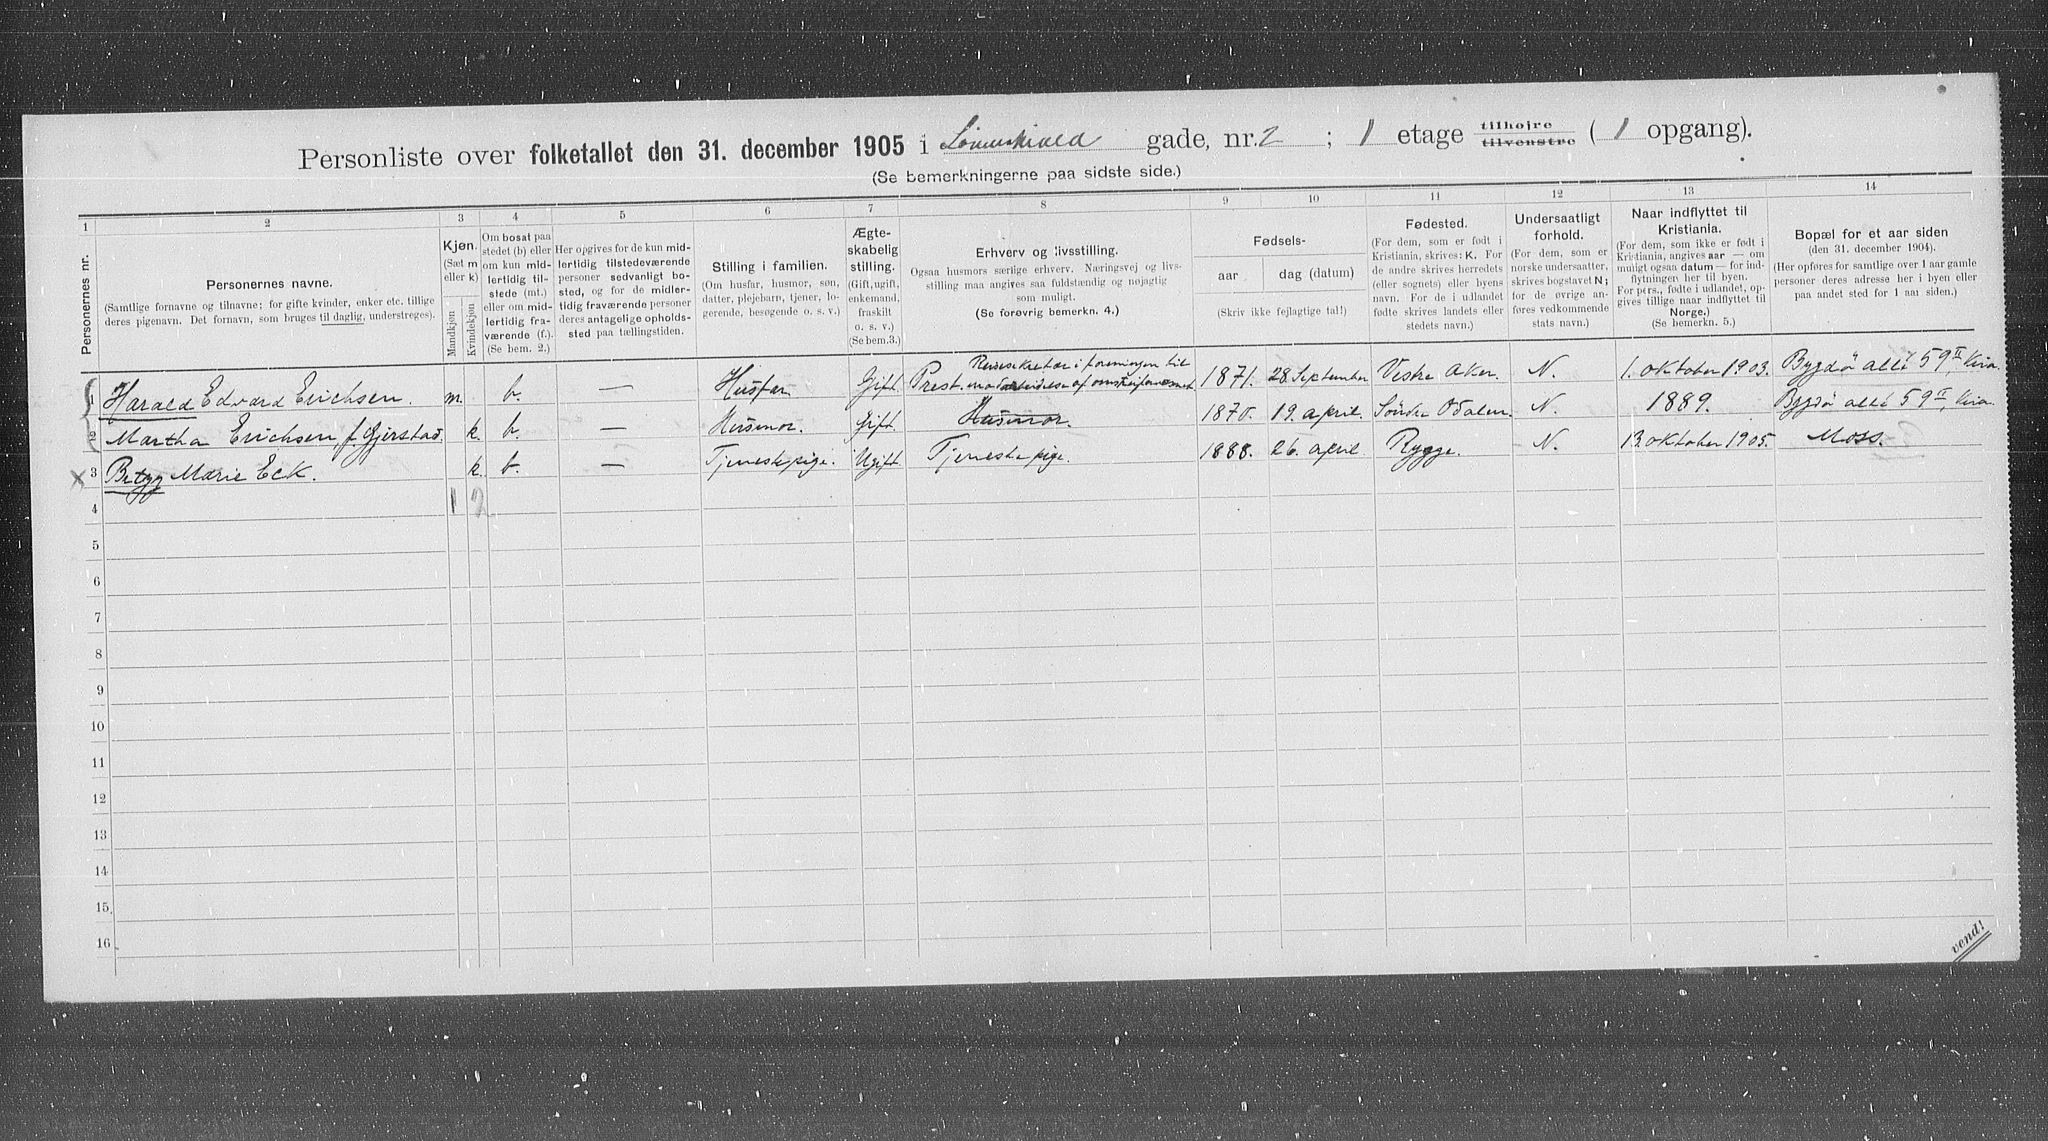 Personliste over folketallet den 31. december 1905 i Løvenskiold gade, nr. 2 ; 1 etage tilhøjre tilvenstre ( 1 opgang).
(Se bemerkningerne paa sidste side.)
1 2 3 4 5 6 7 8 9 10 11 12 13 14
Personernes nr.
Personernes navne.
(Samtlige fornavne og tilnavne; for gifte kvinder, enker etc. tillige
deres pigenavn. Det fornavn, som bruges til daglig, understreges).
Kjøn.
(Sæt m
eller k)
Mandkjøn
Kvindekjøn
Om bosat paa
stedet (b) eller
om kun mid-
lertidig til-
stede (mt.)
eller om mid-
lertidig fra-
værende (f.)
(Se bem. 2.)
Her opgives for de kun mid-
lertidig tilstedeværende
personer sedvanligt bo-
sted, og for de midler-
tidig fraværende personer
deres antagelige opholds-
sted paa tællingstiden.
Stilling i familien.
(Om husfar, husmor, søn,
datter, plejebarn, tjener, lo-
gerende, besøgende o. s. v.)
Ægte-
skabelig
stilling.
(Gift, ugift,
enkemand,
fraskilt
o. s. v.)
(Se bem. 3.)
Erhverv og livsstilling.
Ogsaa husmors særlige erhverv. Næringsvej og livs-
stilling maa angives saa fuldstændig og nøjagtig
som muligt.
(Se forøvrig bemerkn. 4.)
Fødsels-
aar dag (datum)
(Skriv ikke fejlagtige tal!)
Fødested.
(For dem, som er født i
Kristiania, skrives: K. For
de andre skrives herredets
(eller sognets) eller byens
navn. For de i udlandet
fødte skrives landets eller
stedets navn.)
Undersaatligt
forhold.
(For dem, som er
norske undersaatter,
skrives bogstavet N;
for de øvrige an-
føres vedkommende
stats navn.)
Naar indflyttet til
Kristiania.
(For dem, som ikke er født i
Kristiania, angives aar — om
muligt ogsaa datum — for ind-
flytningen her til byen.
For pers., fødte i udlandet, op-
gives tillige naar indflyttet til
Norge.)
(Se bemerkn. 5.)
Bopæl for et aar siden
(den 31. december 1904).
(Her opføres for samtlige over 1 aar gamle
personer deres adresse her i byen eller
paa andet sted for 1 aar siden.)
Reisesekretær i foreningen til
1 Harald Edvard Erichsen. m. b. — Husfar Gift. Prest. modarbeidelse af omskjærernes 1871. 28 September Vestre Aker. N. 1. oktober 1903. Bygdø allé 59 II, Kria.
2 Martha Erichsen, f. Gjerstad. k. b. — Husmor. Gift. Husmor. 1870. 19. april. Søndre Odalen. N. 1889. Bygdø allé 59 II, Kria.
X 3 Marie Eck. k. b. — Tjenestepige. Ugift. Tjenestepige. 1888. 26. april Rygge. N. 13 oktober 1905. Moss.
4 1 2
5
6
7
8
9
10
11
12
13
14
15
16
vend!